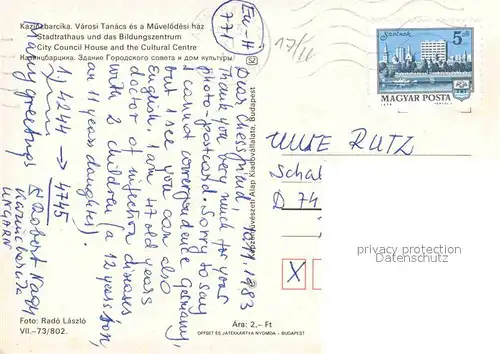 Kazincbarcika. Városi Tanács és a Művelődési ház
Stadtrathaus und das Bildungszentrum
City Council House and the Cultural Centre
Казинцбарцика. Здание Городского совета и дом культуры
Eu-H
771
17/11
Szolnok
5 Ft
MAGYAR POSTA
1883
Dear Chessfriend,
Thank you very much for your
photo-postcard. Sorry to say
I cannot correspondence Germany,
but I see you can also
English. I am 47 old years
doctor of infection diseases
with 2 children (a 12 years son,
an 11 years daughter).
1) 4244 → 4745
Many greetings
Robert Nagy
Kazincbarcika
UNGARN
Képzőművészeti Alap Kiadóvállalata, Budapest
UWE RUTZ
Schal
D 74
X
privacy protection
Foto: Radó László
VII.–73/802.
Ára: 2.– Ft
OFFSET ÉS JÁTÉKKÁRTYA NYOMDA – BUDAPEST